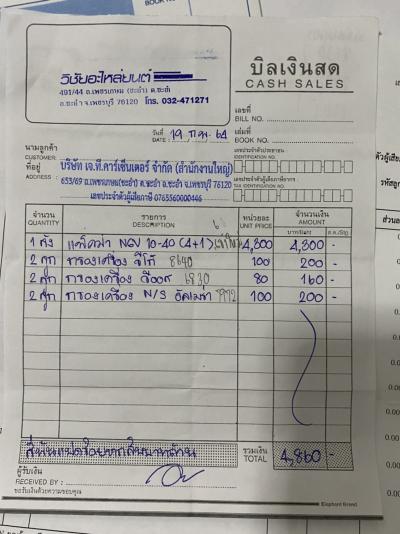 วิชัยอะไหล่ยนต์
491/44 ถ.เพชรเกษม (ชะอำ) ต.ชะอำ
อ.ชะอำ จ.เพชรบุรี 76120 โทร. 032-471271
บิลเงินสด
CASH SALES
เลขที่
BILL NO.
วันที่ 19 ก.พ. 64
DATE
เล่มที่
BOOK NO.
นามลูกค้า
CUSTOMER
บริษัท เจ.ที.คาร์เซ็นเตอร์ จำกัด (สำนักงานใหญ่)
ที่อยู่
ADDRESS
653/69 ถ.เพชรเกษม(ชะอำ) ต.ชะอำ อ.ชะอำ จ.เพชรบุรี 76120
เลขประจำตัวผู้เสียภาษี 0765560000446
เลขประจำตัวประชาชน
IDENTIFICATION NO.
เลขประจำตัวผู้เสียภาษีอากร
TAX IDENTIFICATION NO.
จำนวน รายการ หน่วยละ จำนวนเงิน
QUANTITY DESCRIPTION UNIT PRICE AMOUNT
1 ถัง NGV 10-40 (4+1) 4,300 4,300 -
2 ลูก กรองเครื่อง วีโก้ 8640 100 200 -
2 ลูก กรองเครื่อง วีออส 80 160 -
2 ลูก กรองเครื่อง N/S อัลเมร่า 100 200 -
สี่พันแปดร้อยหกสิบบาทถ้วน
รวมเงิน
TOTAL 4,860 -
ผู้รับเงิน
RECEIVED BY :
ขอรับเงินด้วยความขอบคุณ
Elephant Brand